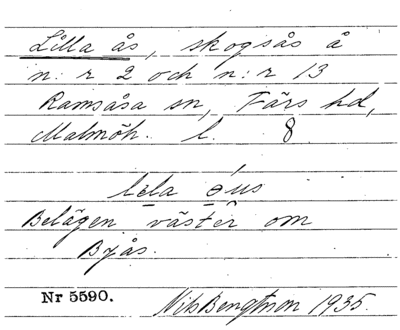 Lilla ås, skogsås å
n:r 2 och n:r 13
Ramsåsa sn, Färs hd,
Malmöh. l. 8
lela
Belägen väster om
Byås.
Nr 5590. Nils Bengtsson 1935.